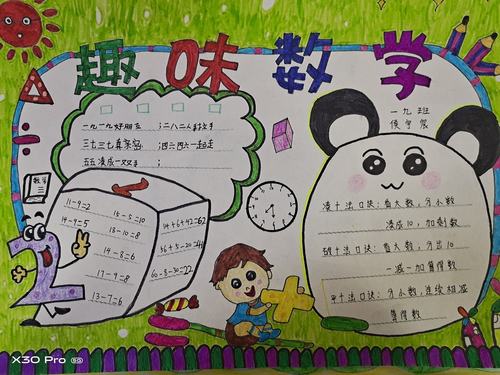 趣味数学
一九班
一九一九好朋友 二八二八手拉手
三七三七真亲密 四六四六一起走
五五凑成一双手
数学
11-9=2
14-9=5
15-5=10
18-10=8
14-8=6
17-9=8
13-7=6
14+6+42=62
60-8-30=22
凑十法口诀：看大数，分小数
凑成10，加剩数
破十法口诀：看大数，分出10
一减一加算得数
平十法口诀：分小数，连续相减
算得数
X30 Pro 5G